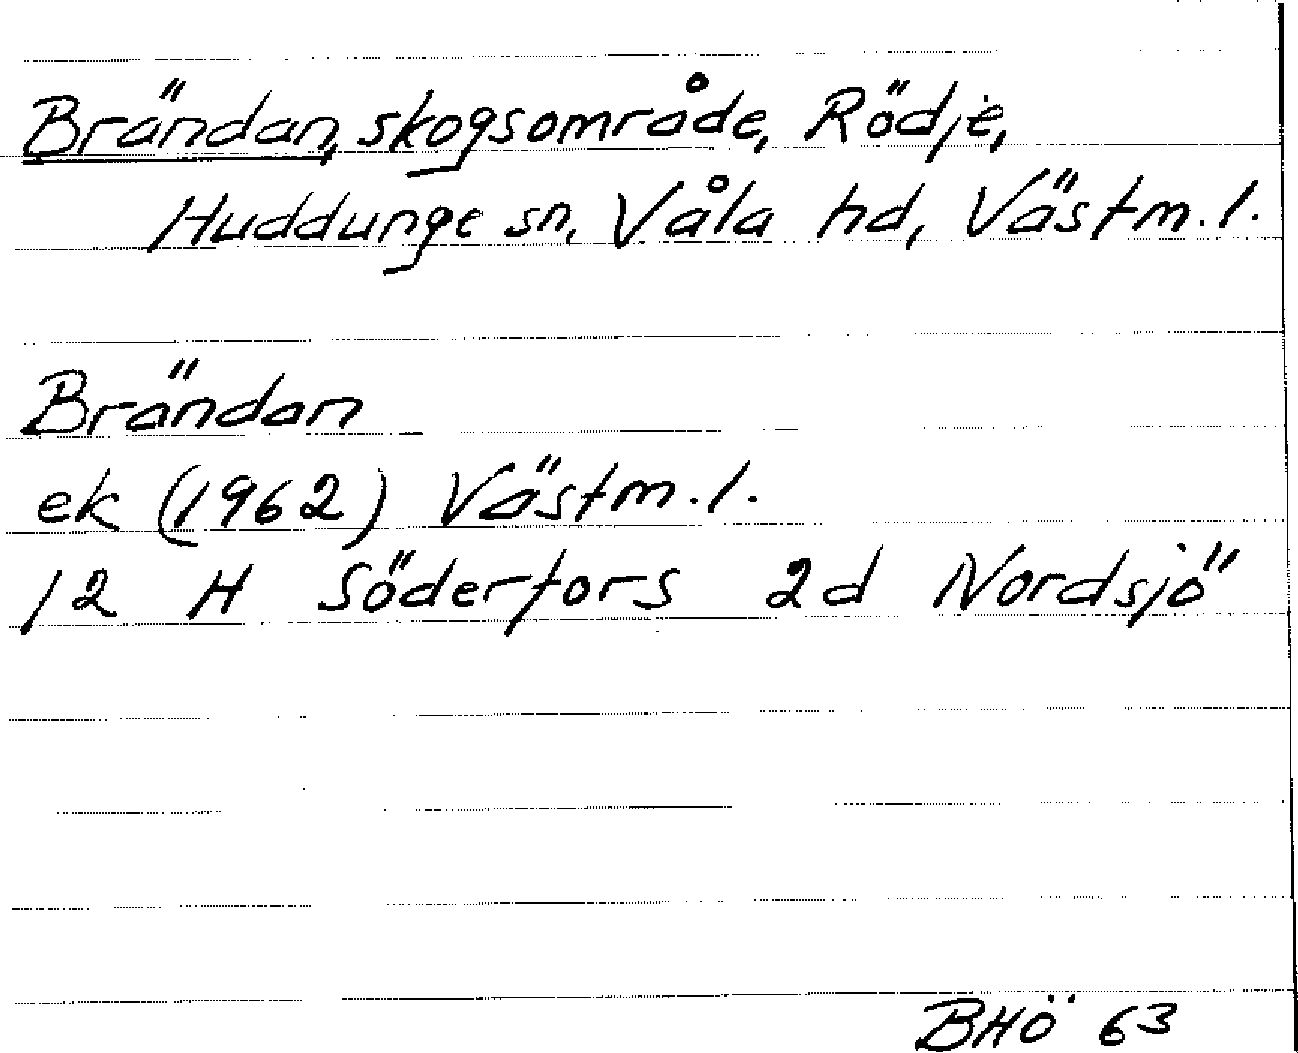 Brändan, skogsområde, Rödje,
Huddunge sn, Våla hd, Västm. l.
Brändan
ek (1962) Västm. l.
12 H Söderfors 2d Nordsjö
BHÖ 63